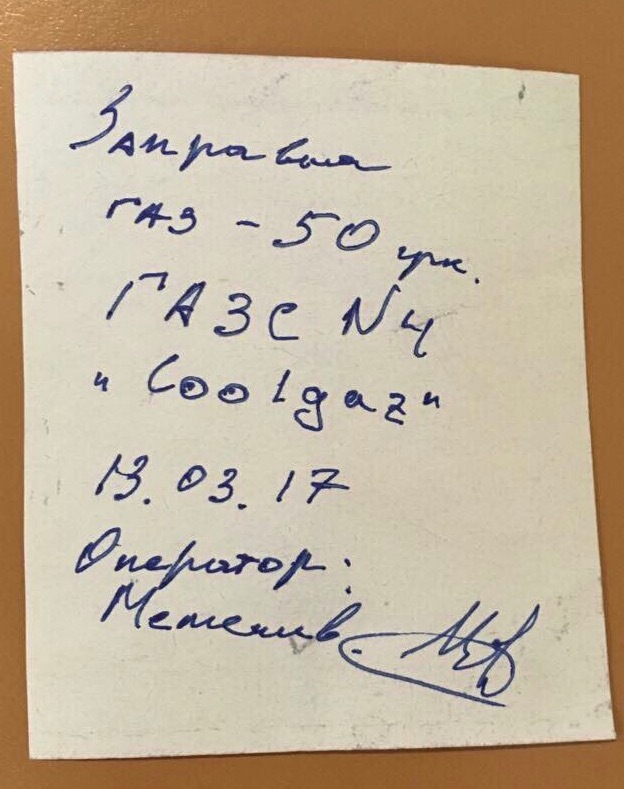 Заправка
газ - 50 грн.
ГАЗС N4
"Coolgaz"
13.03.17
Оператор: